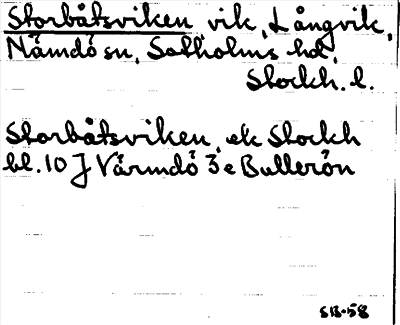 Storbåtsviken, vik, Långvik,
Nämdö sn, Sotholms hd,
Stockh. l.
Storbåtsviken, ek Stockh
bl. 10 J Värmdö 3 e Bullerön
SB-58